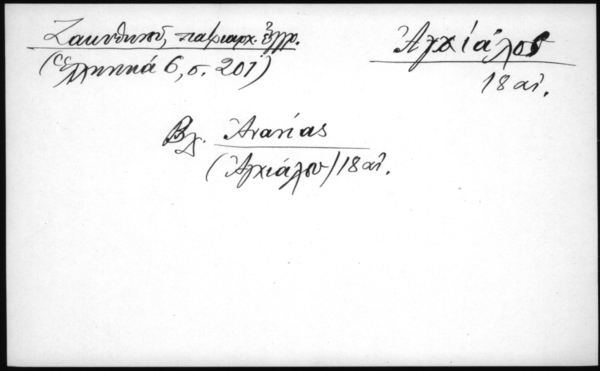 Ζακυθηνοῦ, πατριαρχ. ἔγγρ.
(Ἑλληνικά 6, σ. 201)
Ἀγχίαλος
18 αἰ.
Βλ. Ἀνανίας
(Ἀγχιάλου) 18 αἰ.